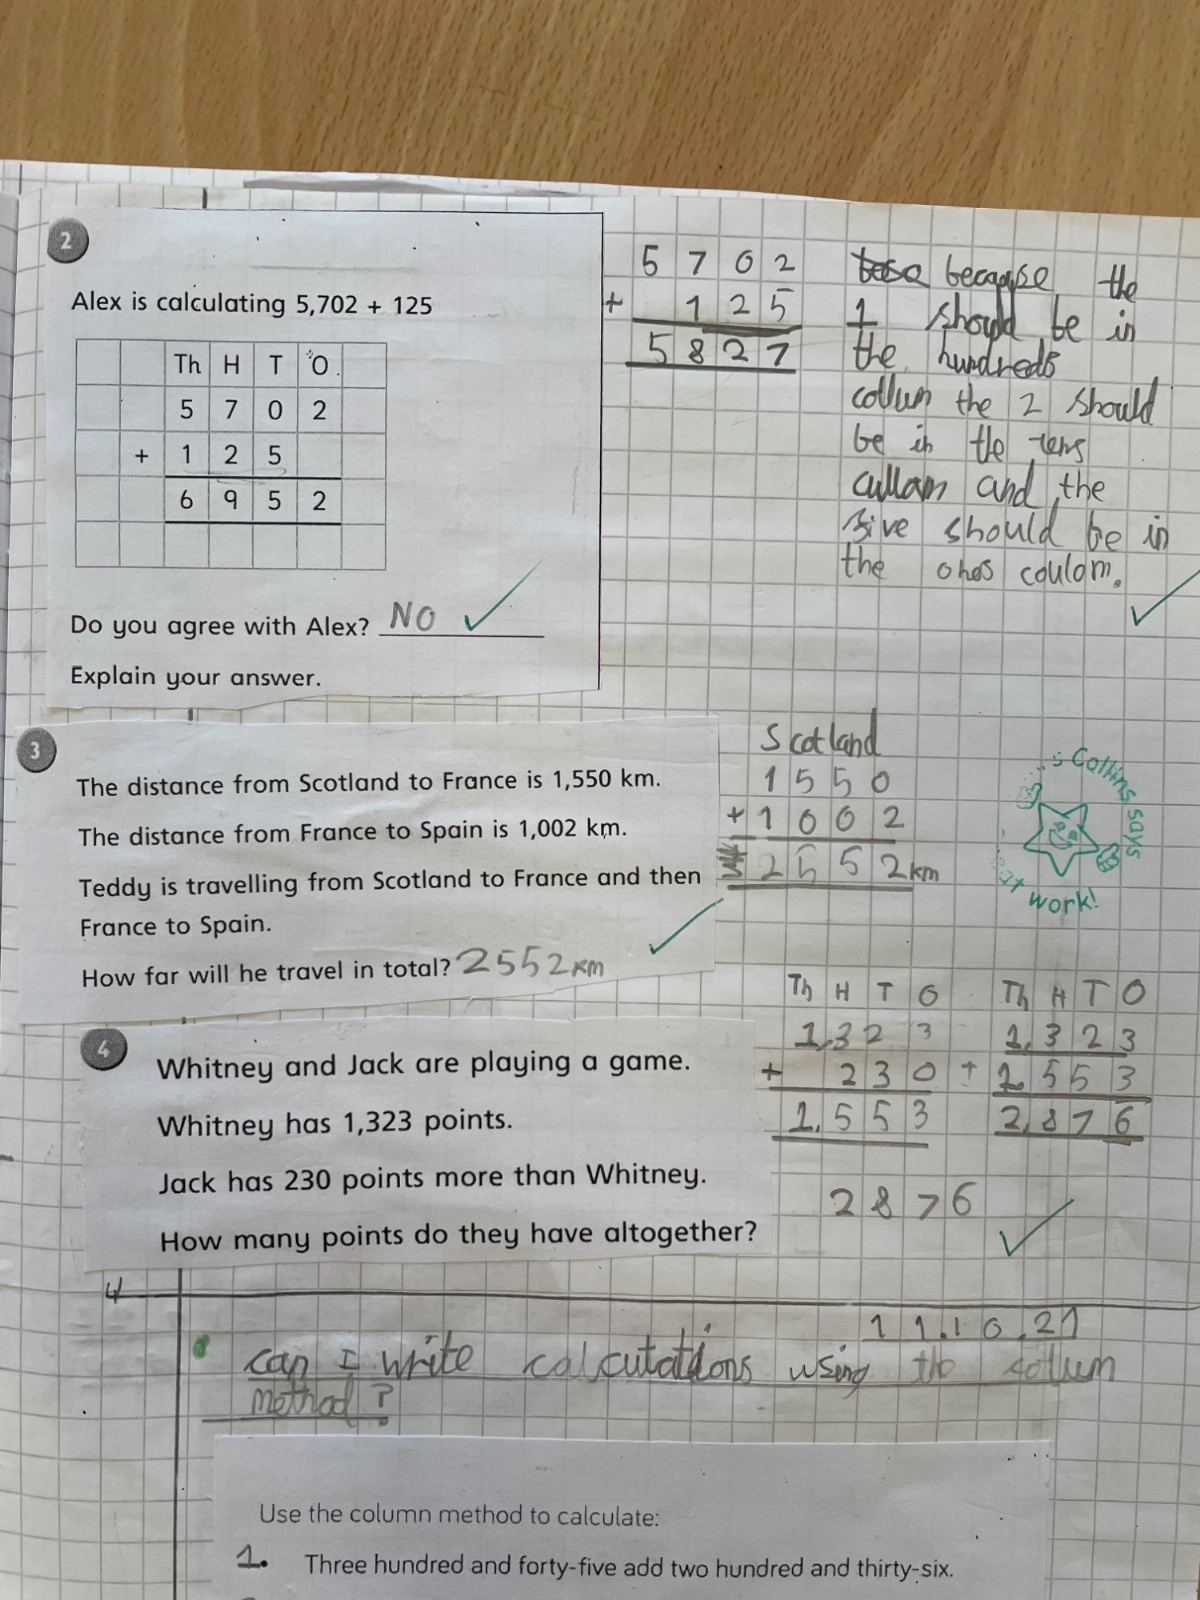 2
Alex is calculating 5,702 + 125
Th H T O
5 7 0 2
+ 1 2 5
6 9 5 2
Do you agree with Alex? NO
Explain your answer.
5 7 0 2
+ 1 2 5
5 8 2 7
because the
1 should be in
the hundreds
collum the 2 should
be in the tens
cullam and the
five should be in
the ones coulom.
3
The distance from Scotland to France is 1,550 km.
The distance from France to Spain is 1,002 km.
Teddy is travelling from Scotland to France and then
France to Spain.
How far will he travel in total? 2552km
Scotland
1 5 5 0
+ 1 0 0 2
2 5 5 2km
Collins says
work!
4
Whitney and Jack are playing a game.
Whitney has 1,323 points.
Jack has 230 points more than Whitney.
How many points do they have altogether?
Th H T O
1,3 2 3
+ 2 3 0
1,5 5 3
Th H T O
1,3 2 3
+ 1 5 5 3
2,8 7 6
2 8 7 6
4
11.10.21
can I write calculations using the collum
method?
Use the column method to calculate:
1. Three hundred and forty-five add two hundred and thirty-six.